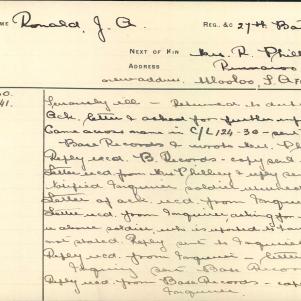 ME Ronald, J. A. REG. &C 27th Ba
NEXT OF KIN Mrs. R. Phill
ADDRESS Pinnaroo
new address Wooloo S.A
0.
41. Seriously ill – Returned to duty
Ack. letter & asked for further
Came across name in C/L 124.30 – sent
Base Records & wrote Mrs. Ph
Reply recd. B. Records – copy sent
Letter recd from Mrs Philley & reply sen
Notified Inquirer soldier
Letter of ack recd from Inquirer
Letter recd. from Inquirer, asking for
above soldier, who is reported to have
not stated. Reply sent to Inquirer
Reply recd. from Inquirer – letter
Inquiry sent Base Record
Reply recd. from Base Records – cop
Inquirer.